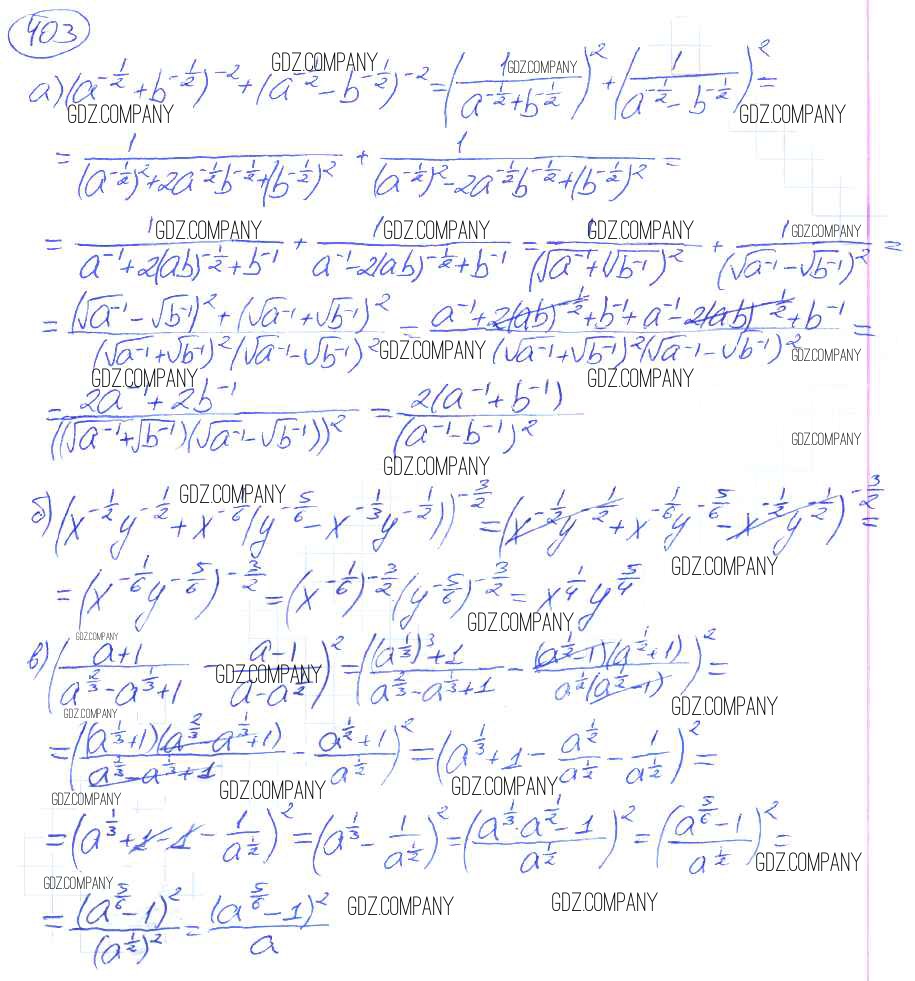 403
GDZ.COMPANY
а) (a^{-1/2} + b^{-1/2})^{-2} + (a^{-1/2} - b^{-1/2})^{-2} = (1/(a^{-1/2} + b^{-1/2}))^2 + (1/(a^{-1/2} - b^{-1/2}))^2 =
GDZ.COMPANY GDZ.COMPANY GDZ.COMPANY
= 1/((a^{-1/2})^2 + 2a^{-1/2}b^{-1/2} + (b^{-1/2})^2) + 1/((a^{-1/2})^2 - 2a^{-1/2}b^{-1/2} + (b^{-1/2})^2) =
GDZ.COMPANY GDZ.COMPANY GDZ.COMPANY GDZ.COMPANY
= 1/(a^{-1} + 2(ab)^{-1/2} + b^{-1}) + 1/(a^{-1} - 2(ab)^{-1/2} + b^{-1}) = 1/(√a^{-1} + √b^{-1})^2 + 1/(√a^{-1} - √b^{-1})^2 =
= ((√a^{-1} - √b^{-1})^2 + (√a^{-1} + √b^{-1})^2)/((√a^{-1} + √b^{-1})^2 (√a^{-1} - √b^{-1})^2) = (a^{-1} + 2(ab)^{-1/2} + b^{-1} + a^{-1} - 2(ab)^{-1/2} + b^{-1})/((√a^{-1} + √b^{-1})^2 (√a^{-1} - √b^{-1})^2) =
GDZ.COMPANY GDZ.COMPANY
GDZ.COMPANY GDZ.COMPANY
= (2a^{-1} + 2b^{-1})/((√a^{-1} + √b^{-1})(√a^{-1} - √b^{-1}))^2 = 2(a^{-1} + b^{-1})/(a^{-1} - b^{-1})^2
GDZ.COMPANY
GDZ.COMPANY
GDZ.COMPANY
б) (x^{-1/2}y^{-1/2} + x^{-1/6}(y^{-5/6} - x^{-1/3}y^{-1/2}))^{-3/2} = (x^{-1/2}y^{-1/2} + x^{-1/6}y^{-5/6} - x^{-1/2}y^{-1/2})^{-3/2} =
GDZ.COMPANY
= (x^{-1/6}y^{-5/6})^{-3/2} = (x^{-1/6})^{-3/2} (y^{-5/6})^{-3/2} = x^{1/4} y^{5/4}
GDZ.COMPANY
GDZ.COMPANY
в) ((a+1)/(a^{2/3} - a^{1/3} + 1) - (a-1)/(a - a^{1/2}))^2 = (((a^{1/3})^3 + 1)/(a^{2/3} - a^{1/3} + 1) - (a^{1/2} - 1)(a^{1/2} + 1)/(a^{1/2}(a^{1/2} - 1)))^2 =
GDZ.COMPANY
GDZ.COMPANY GDZ.COMPANY
= ((a^{1/3} + 1)(a^{2/3} - a^{1/3} + 1)/(a^{2/3} - a^{1/3} + 1) - (a^{1/2} + 1)/a^{1/2})^2 = (a^{1/3} + 1 - a^{1/2}/a^{1/2} - 1/a^{1/2})^2 =
GDZ.COMPANY GDZ.COMPANY GDZ.COMPANY
= (a^{1/3} + 1 - 1 - 1/a^{1/2})^2 = (a^{1/3} - 1/a^{1/2})^2 = ((a^{1/3}·a^{1/2} - 1)/a^{1/2})^2 = ((a^{5/6} - 1)/a^{1/2})^2 =
GDZ.COMPANY
GDZ.COMPANY
= (a^{5/6} - 1)^2/(a^{1/2})^2 = (a^{5/6} - 1)^2/a
GDZ.COMPANY GDZ.COMPANY